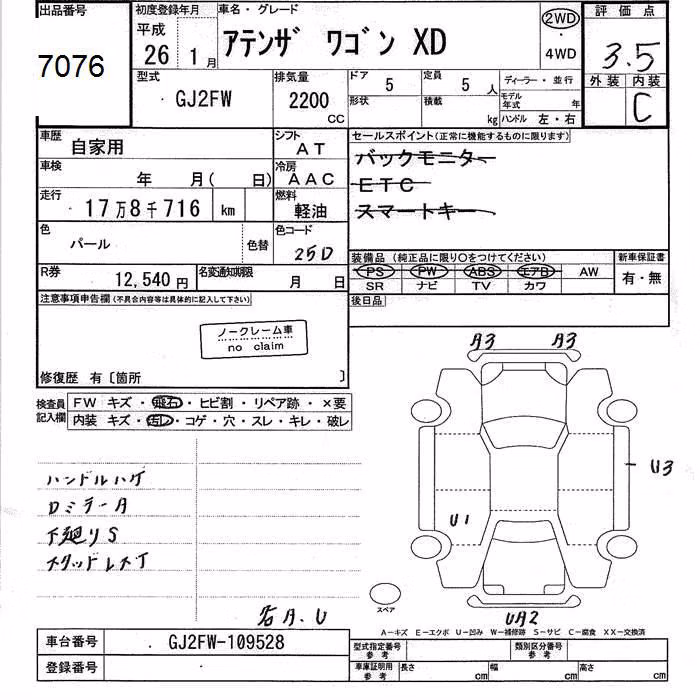 出品番号
7076
初度登録年月
平成
26 1 月
車名・グレード
アテンザ ワゴン XD
2WD
・
4WD
評価点
3.5
外装 内装
C
型式
GJ2FW
排気量
2200
CC
ドア 5
定員 5 人
形状
積載 kg
ディーラー・並行
モデル年式 年
ハンドル 左・右
車歴
自家用
シフト
AT
車検
年 月( 日)
冷房
AAC
走行
17万8千716 km
燃料
軽油
色
パール
色替
色コード
25D
R券
12,540 円
名変通知期限
月 日
セールスポイント(正常に機能するものに限ります)
バックモニター
ETC
スマートキー
装備品 (純正品に限り○をつけてください)
PS PW ABS エアB AW
SR ナビ TV カワ
新車保証書
有・無
後日品
注意事項申告欄(不具合内容等は具体的に記入して下さい)
ノークレーム車
no claim
修復歴 有〔箇所 〕
検査員
記入欄
FW キズ・飛石・ヒビ割・リペア跡・×要
内装 キズ・汚レ・コゲ・穴・スレ・キレ・破レ
ハンドルハゲ
DミラーA
下廻りS
スタッドレスT
名A.U
A3 A3
U3
U1
UA2
スペア
A―キズ E―エクボ U―凹み W―補修跡 S―サビ C―腐食 XX―交換済
車台番号
GJ2FW-109528
登録番号
型式指定番号
参考
類別区分番号
参考
車庫証明用
参考
長さ cm
幅 cm
高さ cm